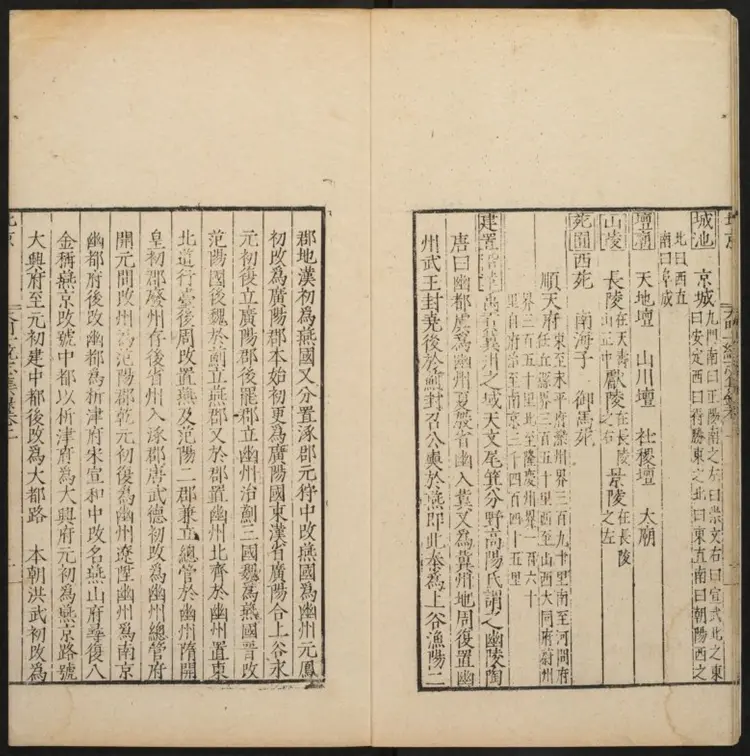 北京
城池 京城 九門南曰正陽南之左曰崇文右曰宣武北之東
曰安定西曰得勝東之北曰東直南曰朝陽西之
北曰西直
南曰阜成
壇廟 天地壇 山川壇 社稷壇 太廟
山陵 長陵 在天壽山正中 獻陵 在長陵之右 景陵 在長陵之左
苑囿 西苑 南海子 御馬苑
順天府 東至永平府灤州界三百九十里南至河間府
任丘縣界三百五十里西至山西大同府蔚州
界三百五十里北至隆慶州界一百六十
里自府治至南京三千四百四十五里
建置沿革 禹貢冀州之域天文尾箕分野高陽氏謂之幽陵陶
唐曰幽都虞爲幽州夏殷省幽入冀又爲冀州地周復置幽
州武王封堯後於薊封召公奭於燕即此秦爲上谷漁陽二
郡地漢初爲燕國又分置涿郡元狩中改燕國爲幽州元鳳
初改爲廣陽郡本始初更爲廣陽國東漢省廣陽合上谷永
元初復立廣陽郡後罷郡立幽州治薊三國魏爲燕國晉改
范陽國後魏於薊立燕郡又於郡置幽州北齊於幽州置東
北道行臺後周改置燕及范陽二郡兼立總管於幽州隋開
皇初郡廢州存後省州入涿郡唐武德初改爲幽州總管府
開元間改州爲范陽郡乾元初復爲幽州遼陞幽州爲南京
幽都府後改幽都爲析津府宋宣和中改名燕山府尋復入
金稱燕京改號中都以析津府爲大興府元初爲燕京路號
大興府至元初建中都後改爲大都路 本朝洪武初改爲
北京